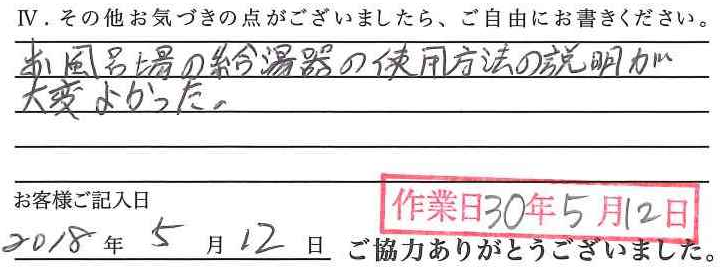 Ⅳ．その他お気づきの点がございましたら、ご自由にお書きください。
お風呂場の給湯器の使用方法の説明が
大変よかった。
お客様ご記入日
作業日30年5月12日
2018年5月12日
ご協力ありがとうございました。